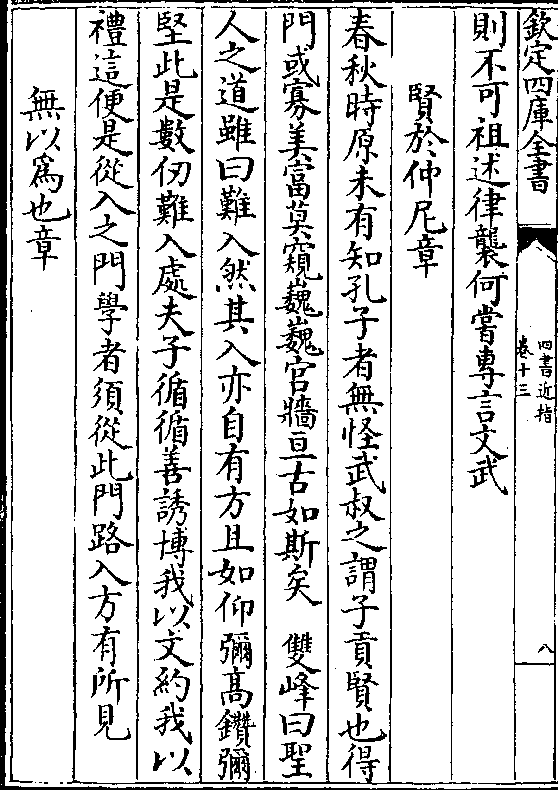 欽定四庫全書
四書近指
卷十三
八
則不可祖述律襲何嘗專言文武
賢於仲尼章
春秋時原未有知孔子者無怪武叔之謂子貢賢也得
門或寡美富莫窺巍巍宫牆亘古如斯矣　雙峰曰聖
人之道雖曰難入然其入亦自有方且如仰彌高鑽彌
堅此是數仞難入處夫子循循善誘博我以文約我以
禮這便是從入之門學者須從此門路入方有所見
無以爲也章